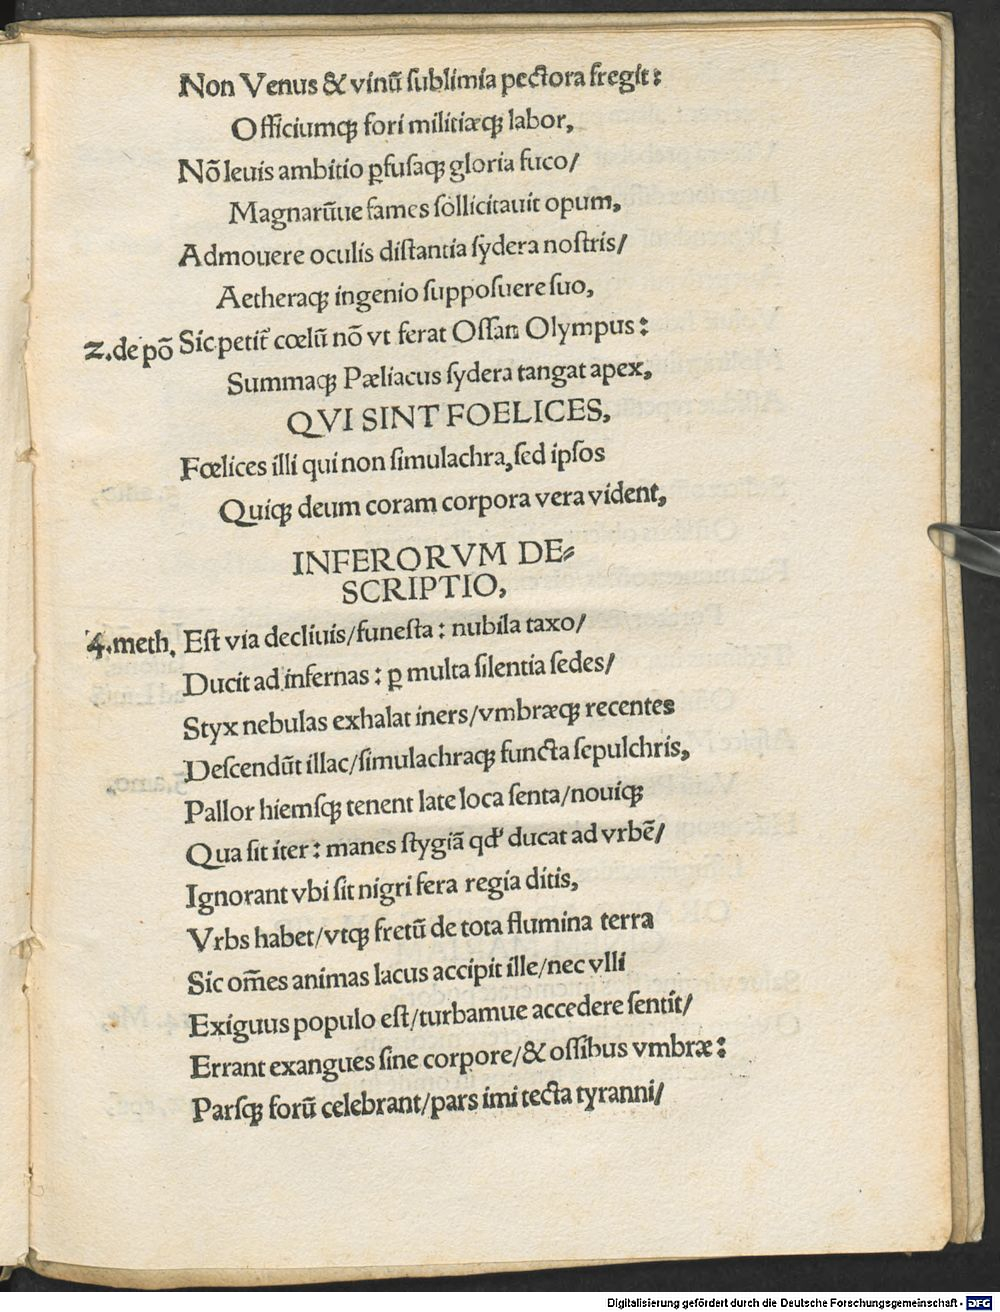 Non Venus & vinū ſublimia pectora fregit:
Officiumqꝫ fori militiæqꝫ labor,
Nō leuis ambitio ꝑfuſaqꝫ gloria fuco/
Magnarūue fames ſollicitauit opum,
Admouere oculis diſtantia ſydera noſtris/
Aetheraqꝫ ingenio ſuppoſuere ſuo,
2.de pō Sic petit̄ cœlū nō vt ferat Oſſan Olympus:
Summaqꝫ Pæliacus ſydera tangat apex,
QVI SINT FOELICES,
Fœlices illi qui non ſimulachra,ſed ipſos
Quiqꝫ deum coram corpora vera vident,
INFERORVM DE⸗
SCRIPTIO,
4.meth, Eſt via decliuis/funeſta: nubila taxo/
Ducit ad infernas: ꝑ multa ſilentia ſedes/
Styx nebulas exhalat iners/vmbræqꝫ recentes
Deſcendūt illac/ſimulachraqꝫ functa ſepulchris,
Pallor hiemſqꝫ tenent late loca ſenta/nouiqꝫ
Qua ſit iter: manes ſtygiā qd' ducat ad vrbē/
Ignorant vbi ſit nigri fera regia ditis,
Vrbs habet/vtqꝫ fretū de tota flumina terra
Sic om̄es animas lacus accipit ille/nec vlli
Exiguus populo eſt/turbamue accedere ſentit/
Errant exangues ſine corpore/& oſſibus vmbræ:
Parſqꝫ forū celebrant/pars imi tecta tyranni/
Digitalisierung gefördert durch die Deutsche Forschungsgemeinschaft - DFG